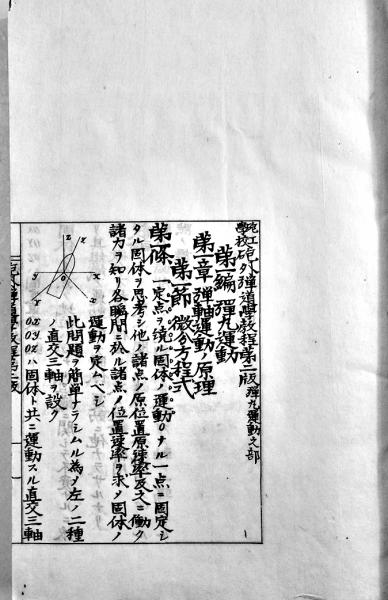 砲工學校 砲外彈道學教程第二版 彈丸運動之部
第一編 彈丸運動
第一章 彈軸運動ノ原理
第一節 微分方程式
第一條 一定点ヲ繞ル固体ノ運動 Oナル一点ニ固定シ
タル固体ヲ思考シ他ノ諸点ノ原位置原速率及又ニ働ク
諸力ヲ知リ各瞬間ニ於ル諸点ノ位置速率ヲ求メ固体ノ
運動ヲ定ムベシ
此問題ヲ簡単ナラシムル為メ左ノ二種
ノ直交三軸ヲ設ク
ox oy oz ハ固体ト共ニ運動スル直交三軸
z z
y o x
Y x
一